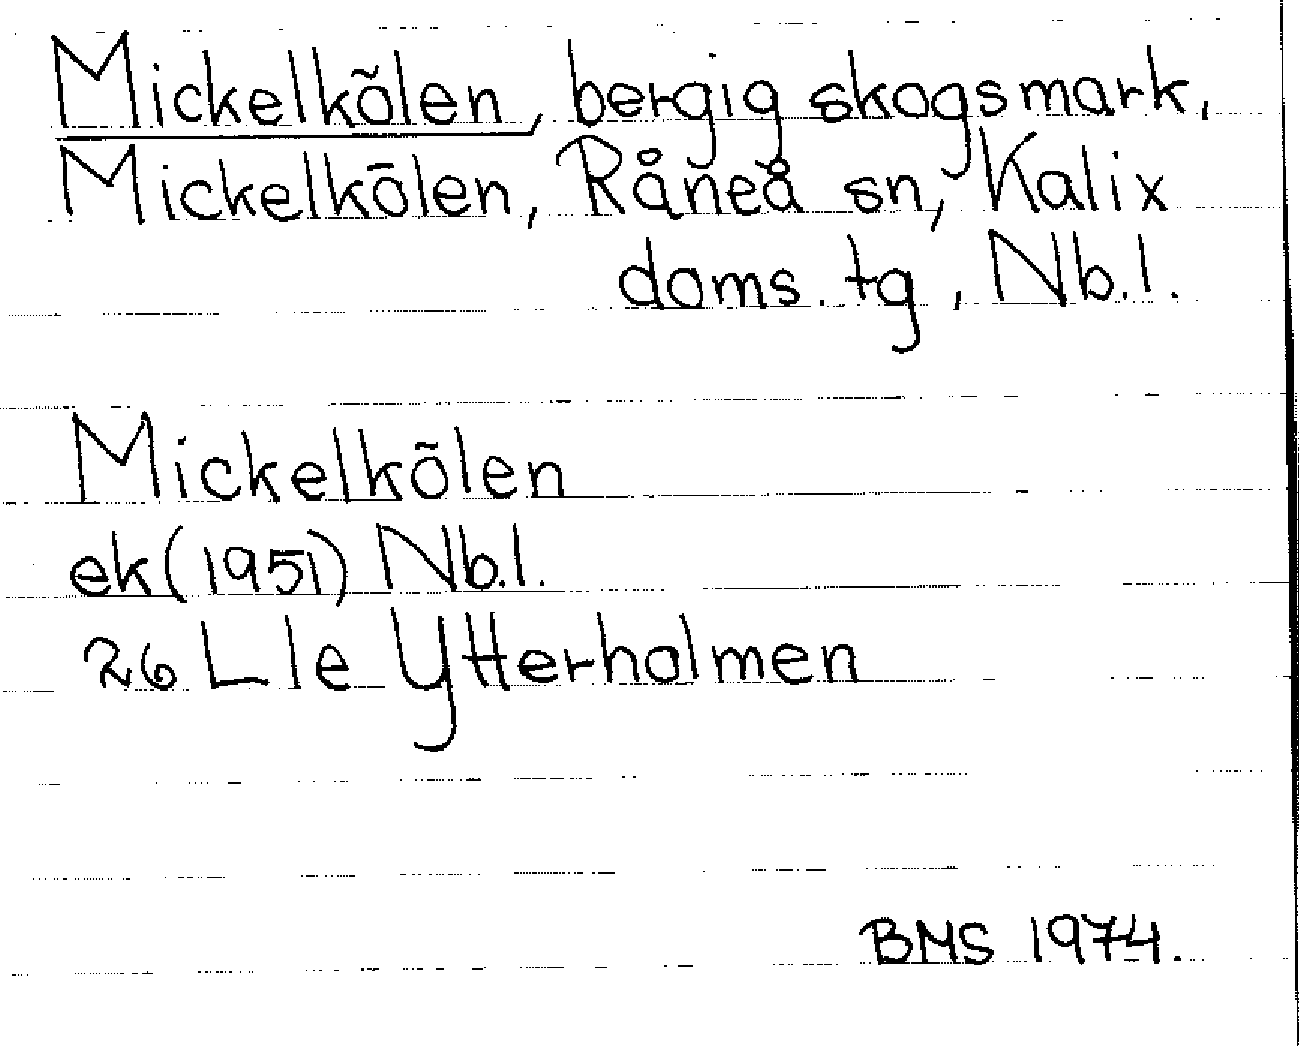 Mickelkölen, bergig skogsmark,
Mickelkölen, Råneå sn, Kalix
doms. tg, Nb.l.
Mickelkölen
ek (1951) Nb.l.
26 L le Ytterholmen
BMS 1974.